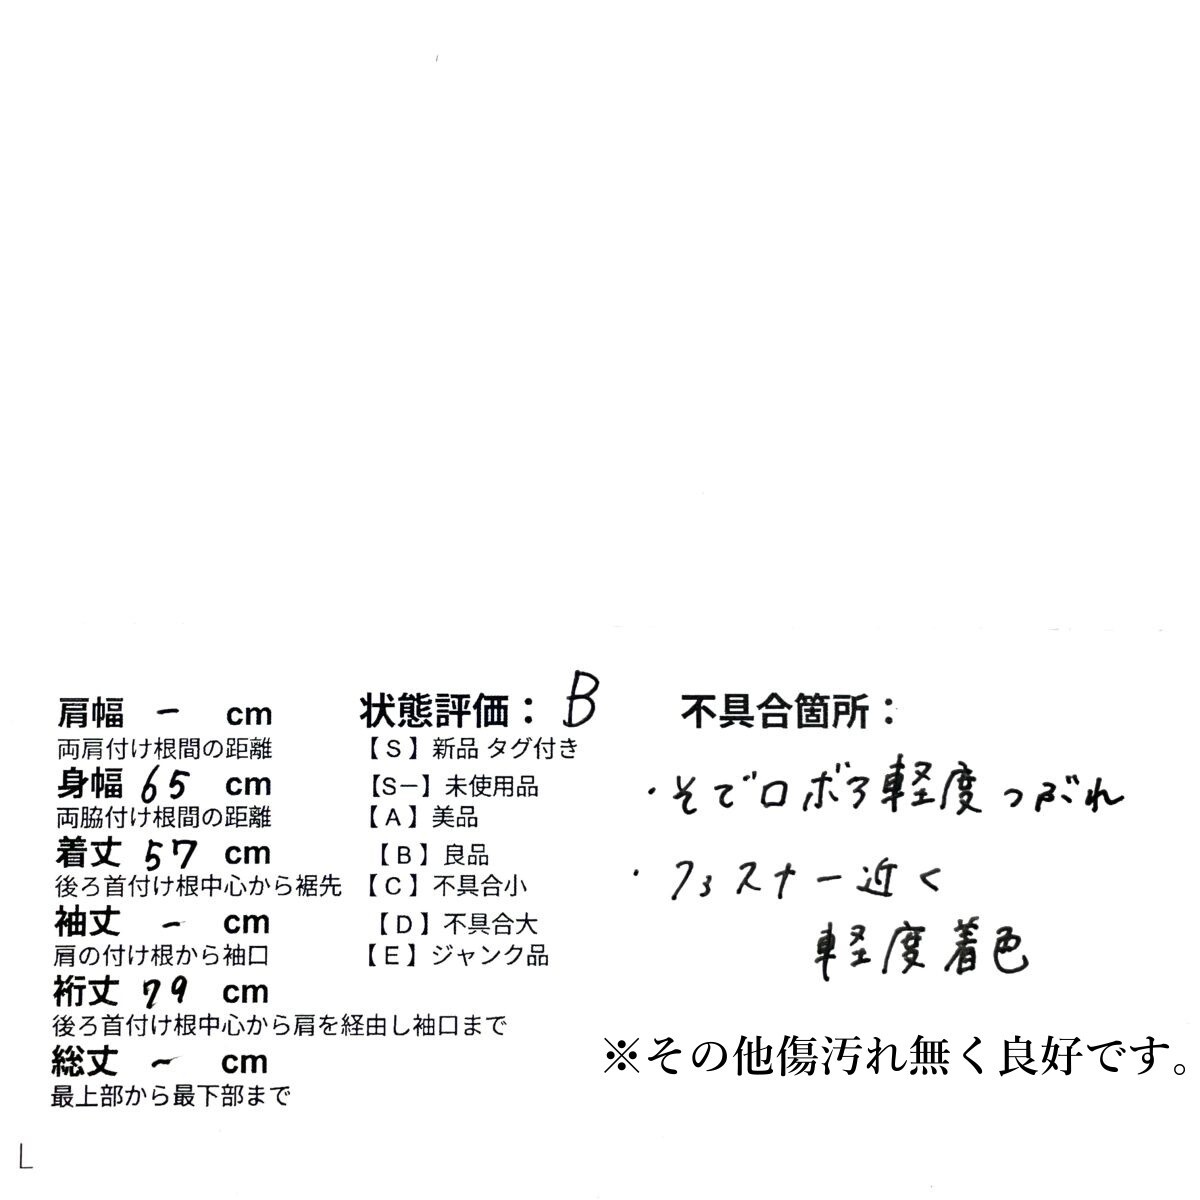 肩幅 ー cm
両肩付け根間の距離
身幅 65 cm
両脇付け根間の距離
着丈 57 cm
後ろ首付け根中心から裾先
袖丈 - cm
肩の付け根から袖口
裄丈 79 cm
後ろ首付け根中心から肩を経由し袖口まで
総丈 ~ cm
最上部から最下部まで
L
状態評価： B
【S】新品 タグ付き
【S−】未使用品
【A】美品
【B】良品
【C】不具合小
【D】不具合大
【E】ジャンク品
不具合箇所：
・そで口ボろ軽度つぶれ
・フスナー近く
軽度着色
※その他傷汚れ無く良好です。